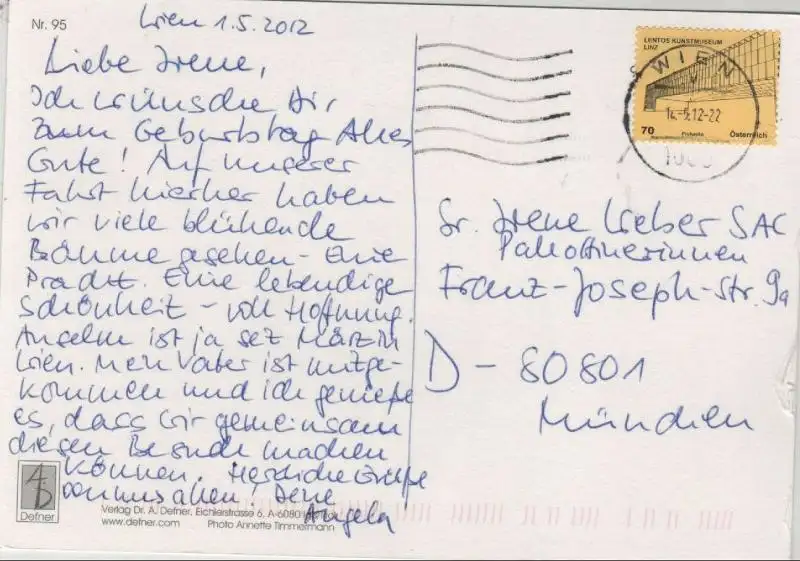 Nr. 95
Wien 1.5.2012
Liebe Irene,
Ich wünsche Dir,
zum Geburtstag Alles
Gute! Auf unserer
Fahrt hierher haben
wir viele blühende
Bäume gesehen - Eine
Pracht. Eine lebendige
Schönheit - voll Hoffnung.
Anselm ist ja seit März in
Wien. Mein Vater ist mitge-
kommen und ich genieße
es, dass wir gemeinsam
diesen Besuch machen
können. Herzliche Grüße
von uns allen. Deine
Angela
AD
Defner
Verlag Dr. A. Defner, Eichlerstrasse 6, A-6080
www.defner.com Photo Annette Timmermann
LENTOS KUNSTMUSEUM
LINZ
70
Österreich
WIEN
-5.12-22
Sr. Irene Weber SAC
Pallottinerinnen
Franz-Joseph-Str. 9a
D - 80801
München